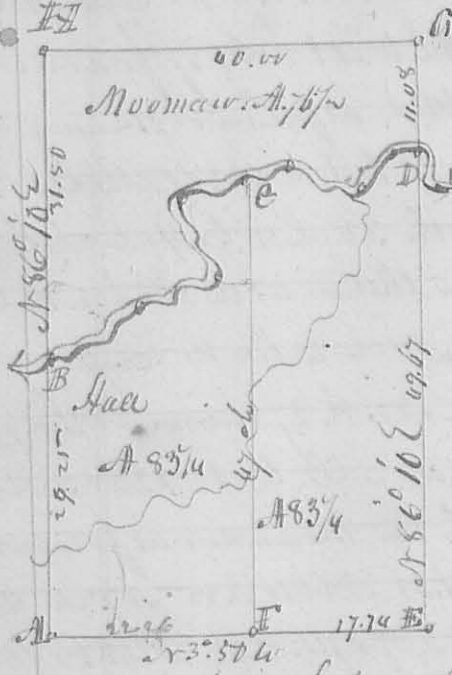 H
G
40.00
Moomaw. A. 76½
11.08
N 86° 10' E
31.50
C
D
B
Hall
A 83¼
29.25
47 ch
49.67
N 86° 10' E
A 83¼
A
22.26
F
17.74
E
N 3° 50 W